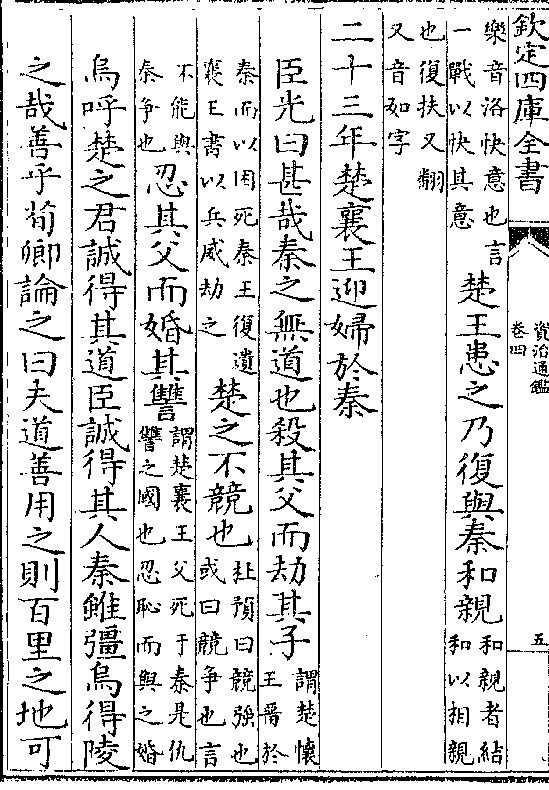 欽定四庫全書
資治通鑑
卷四
五
樂音洛快意也言
一戰以快其意
楚王患之乃復與秦和親
和親者結
和以相親
也復扶又翻
又音如字
二十三年楚襄王迎婦於秦
臣光曰甚哉秦之無道也殺其父而劫其子
謂楚懷
王畱於
秦而以困死秦王復遺
襄王書以兵威劫之
楚之不競也
杜預曰競強也
或曰競争也言
不能與
秦争也
忍其父而婚其讐
謂楚襄王父死于秦是仇
讐之國也忍恥而與之婚
烏呼楚之君誠得其道臣誠得其人秦雖彊烏得陵
之哉善乎荀卿論之曰夫道善用之則百里之地可